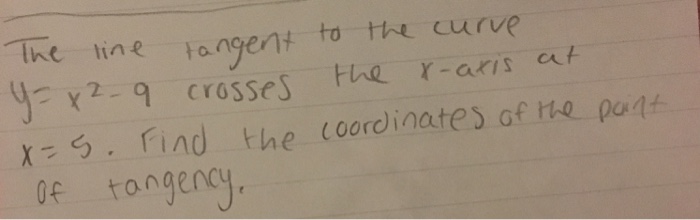 The line tangent to the curve
y = x² - 9 crosses the x-axis at
x = 5. Find the coordinates of the point
of tangency.